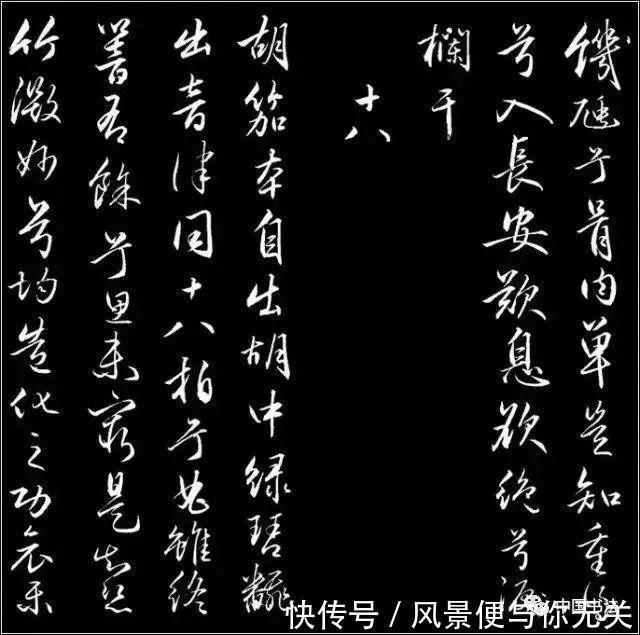 饑豗兮骨肉單豈知重得
兮入長安歎息欲絶兮淚
欄干
十八
胡笳本自出胡中緑琴翻
出音律同十八拍兮曲雖終
響有餘兮思未窮是知絲
竹微妙兮均造化之功哀樂
中国书法
快传号 / 风景便与你无关